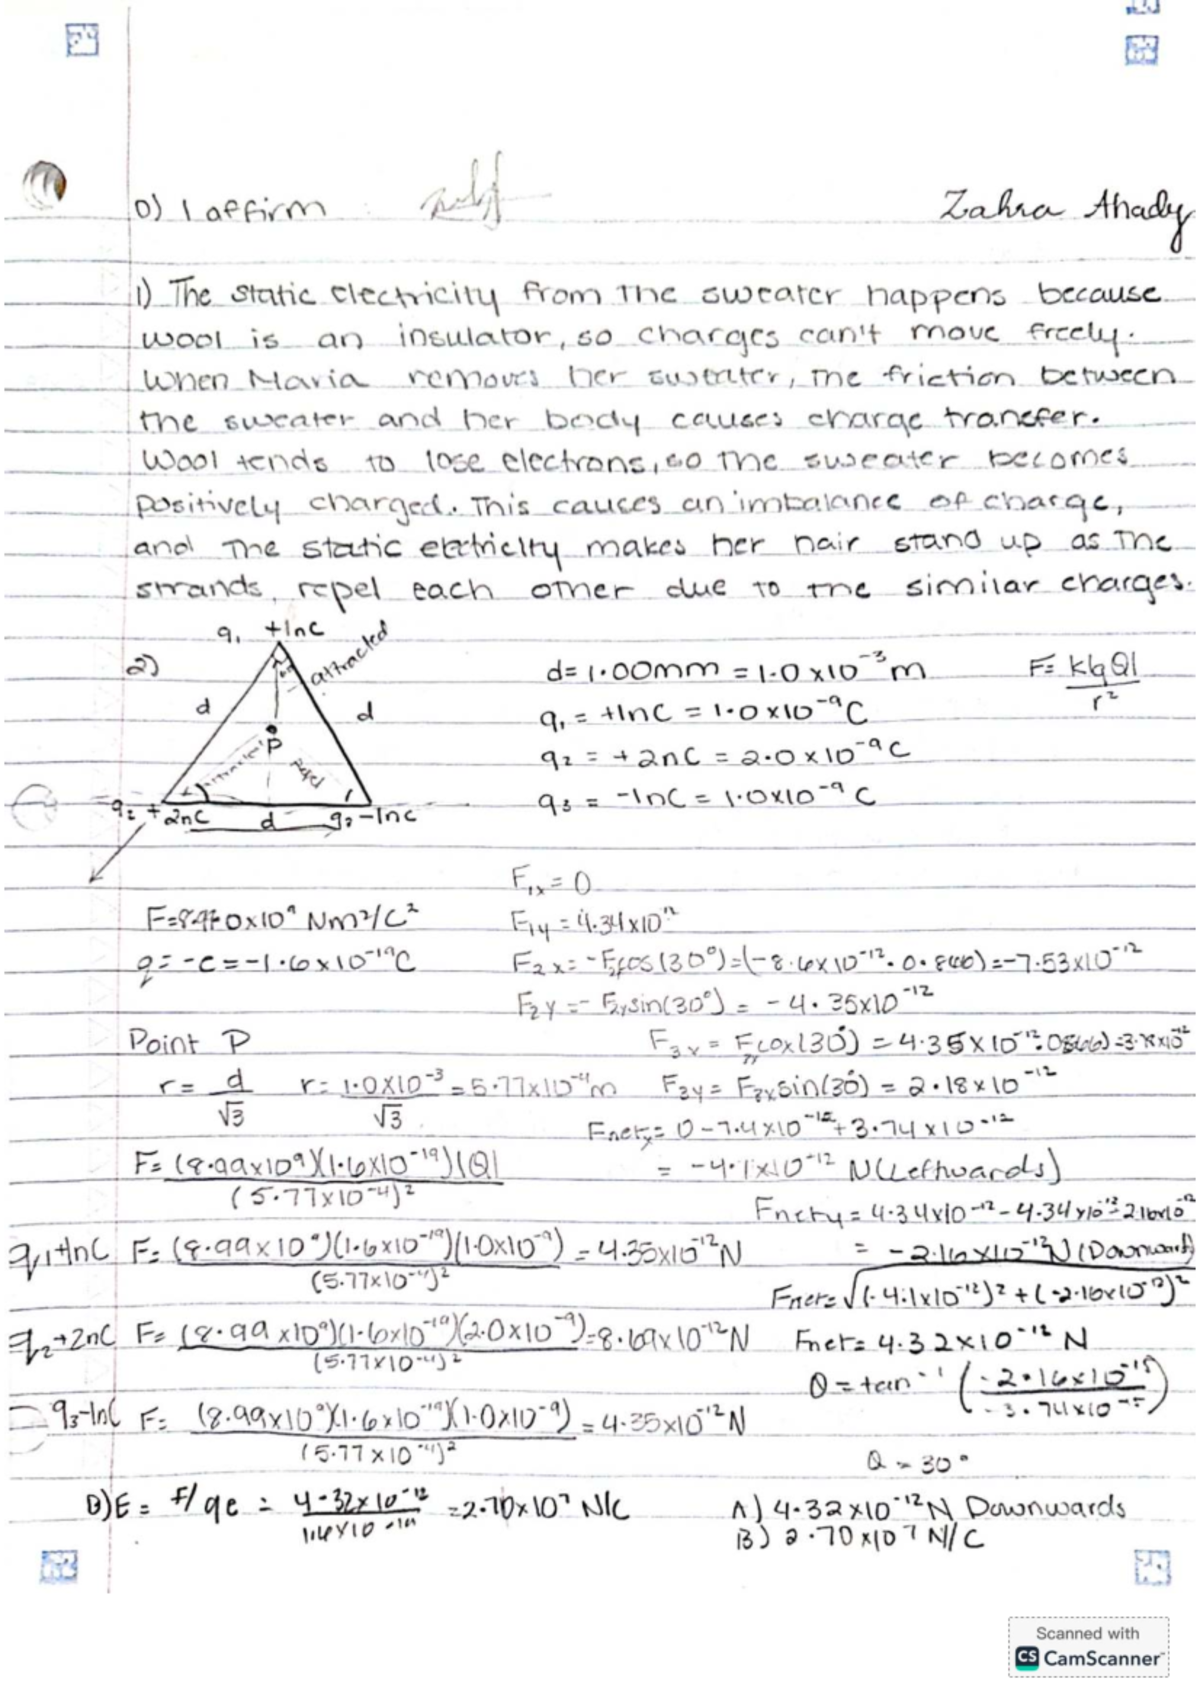 0) I affirm
Zahra Ahady
1) The static electricity from the sweater happens because
wool is an insulator, so charges can't move freely.
When Maria removes her sweater, the friction between
the sweater and her body causes charge transfer.
Wool tends to lose electrons, so the sweater becomes
positively charged. This causes an imbalance of charge,
and the static electricity makes her hair stand up as the
strands, repel each other due to the similar charges.
2)
q₁ +1nC
attracted
d
d
P
repel
q₂ +2nC
d
q₃ -1nC
d = 1.00mm = 1.0 x10⁻³ m
F = k|qQ|/r²
q₁ = +1nC = 1.0 x10⁻⁹C
q₂ = +2nC = 2.0 x10⁻⁹C
q₃ = -1nC = 1.0x10⁻⁹ C
F₁ₓ = 0
x10⁹ Nm²/C²
F₁y = 4.34x10⁻¹²
q = -e = -1.6 x10⁻¹⁹C
F₂x = cos(30°) = (-8.6x10⁻¹² · 0.866) = -7.53x10⁻¹²
F₂y = sin(30°) = -4.35x10⁻¹²
Point P
(30°) = 4.35x10⁻¹² · 0.866) = x10⁻¹²
r = d/√3
r = 1.0x10⁻³/√3 = 5.77x10⁻⁴m
sin(30°) = 2.18x10⁻¹²
Fnetx = 0 - 7.4x10⁻¹² + 3.74x10⁻¹²
F = (8.99x10⁹)(1.6x10⁻¹⁹)|Q|/(5.77x10⁻⁴)²
= -4.1x10⁻¹² N (Leftwards)
Fnety = 4.34x10⁻¹² - 4.34x10⁻¹² 2.16x10⁻¹²
q₁+1nC F = (8.99x10⁹)(1.6x10⁻¹⁹)(1.0x10⁻⁹)/(5.77x10⁻⁴)² = 4.35x10⁻¹²N
= -2.16x10⁻¹²N (Downward)
Fnet = √(-4.1x10⁻¹²)² + (-2.16x10⁻¹²)²
q₂+2nC F = (8.99x10⁹)(1.6x10⁻¹⁹)(2.0x10⁻⁹)/(5.77x10⁻⁴)² = 8.69x10⁻¹²N
Fnet = 4.32x10⁻¹² N
θ = tan⁻¹
q₃-1nC F = (8.99x10⁹)(1.6x10⁻¹⁹)(1.0x10⁻⁹)/(5.77x10⁻⁴)² = 4.35x10⁻¹²N
30°
B) E = F/qe = 4.32x10⁻¹²/1.6x10⁻¹⁹ = 2.70x10⁷ N/C
A) 4.32x10⁻¹²N Downwards
B) 2.70x10⁷ N/C
Scanned with
CS CamScanner